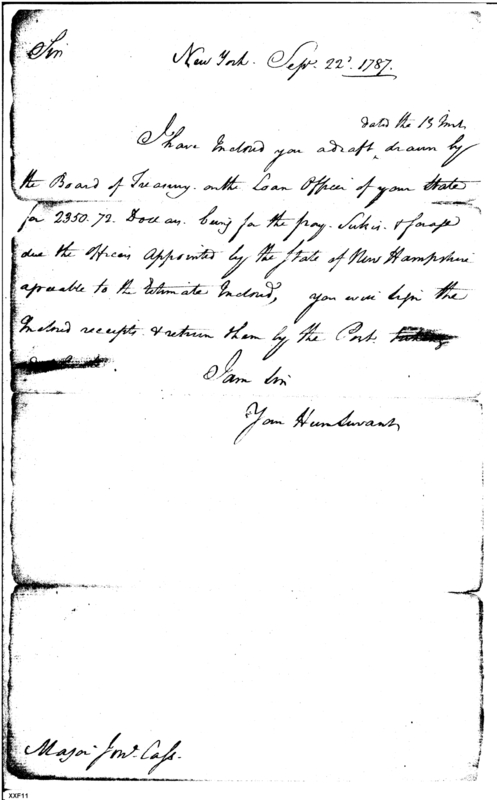 Sir
New York. Sepr. 22d. 1787.
dated the 13 Inst.
I have Inclosed you a draft ^ drawn by
the Board of Treasury. on the Loan Officer of your State
for 2350.72. Dollars. being for the pay. Subsis. & forage
due the Officers Appointed by the State of New Hampshire
agreeable to the Estimate Inclosed, you will sign the
Inclosed receipts & return them by the Post.
I am Sir
Your Hum Servant
Major Jona. Cass.
XXF11